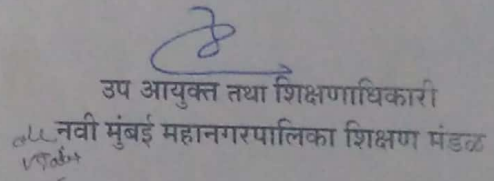 उप आयुक्त तथा शिक्षणाधिकारी
नवी मुंबई महानगरपालिका शिक्षण मंडळ